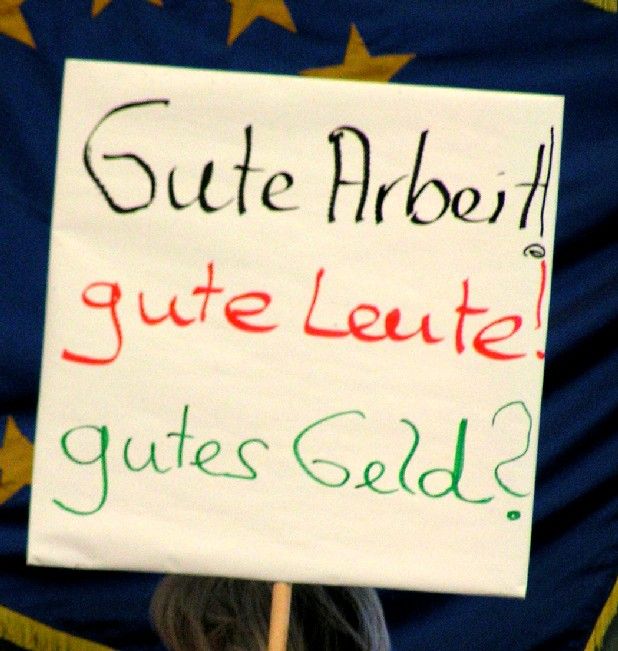 Gute Arbeit!
gute Leute!
gutes Geld?